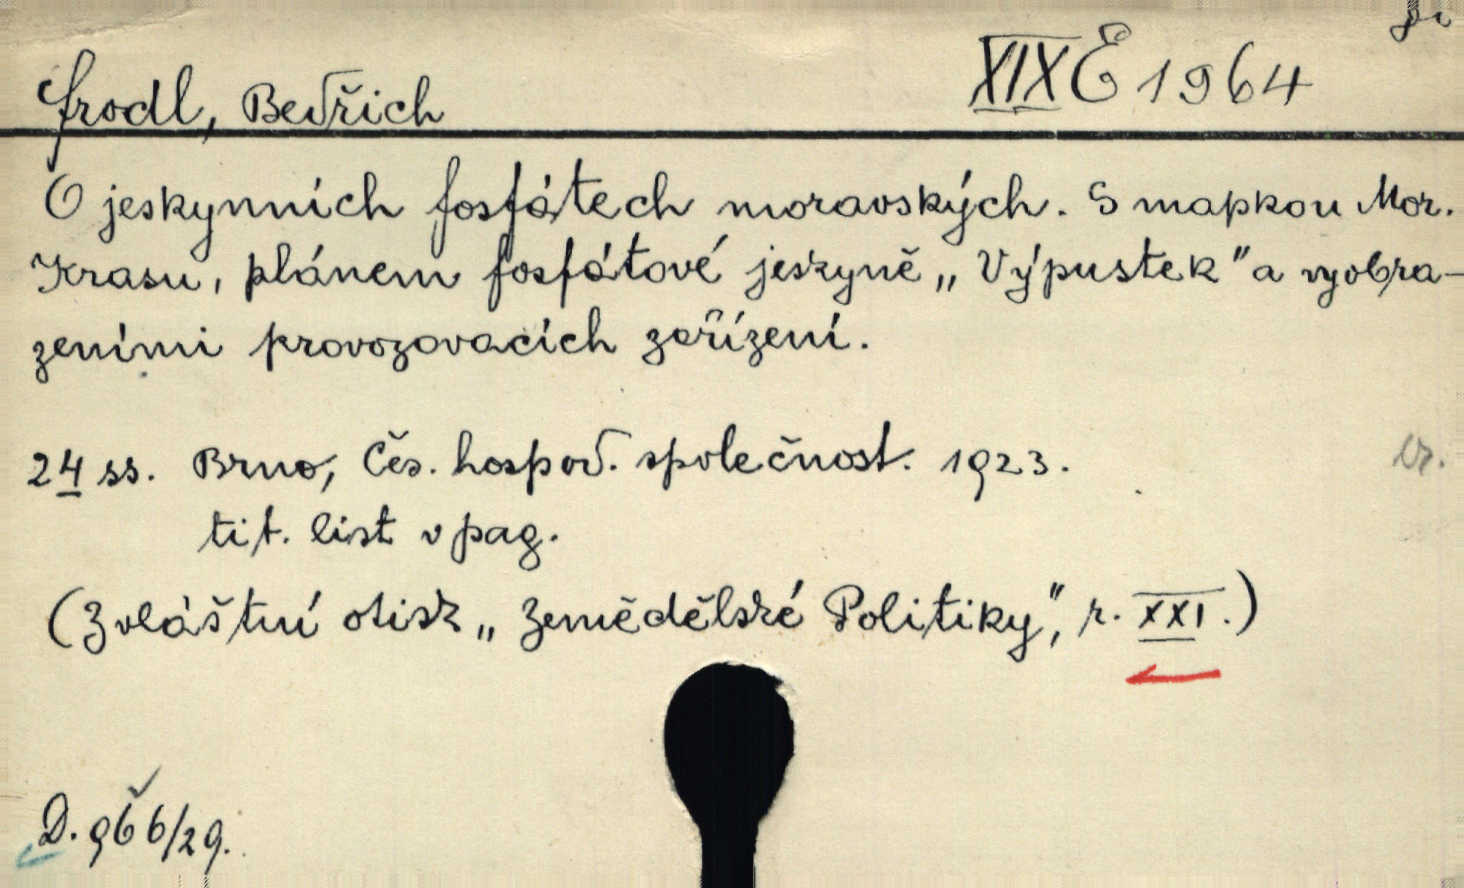 XIX E 1964
Frodl, Bedřich
O jeskynních fosfátech moravských. S mapkou Mor.
Krasu, plánem fosfátové jeskyně „Výpustek" a vyobra-
zeními provozovacích zařízení.
24 ss. Brno, Čes. hospod. společnost. 1923.
tit. list v pag.
(Zvláštní otisk „Zemědělské Politiky", r. XXI.)
D. 966/29.